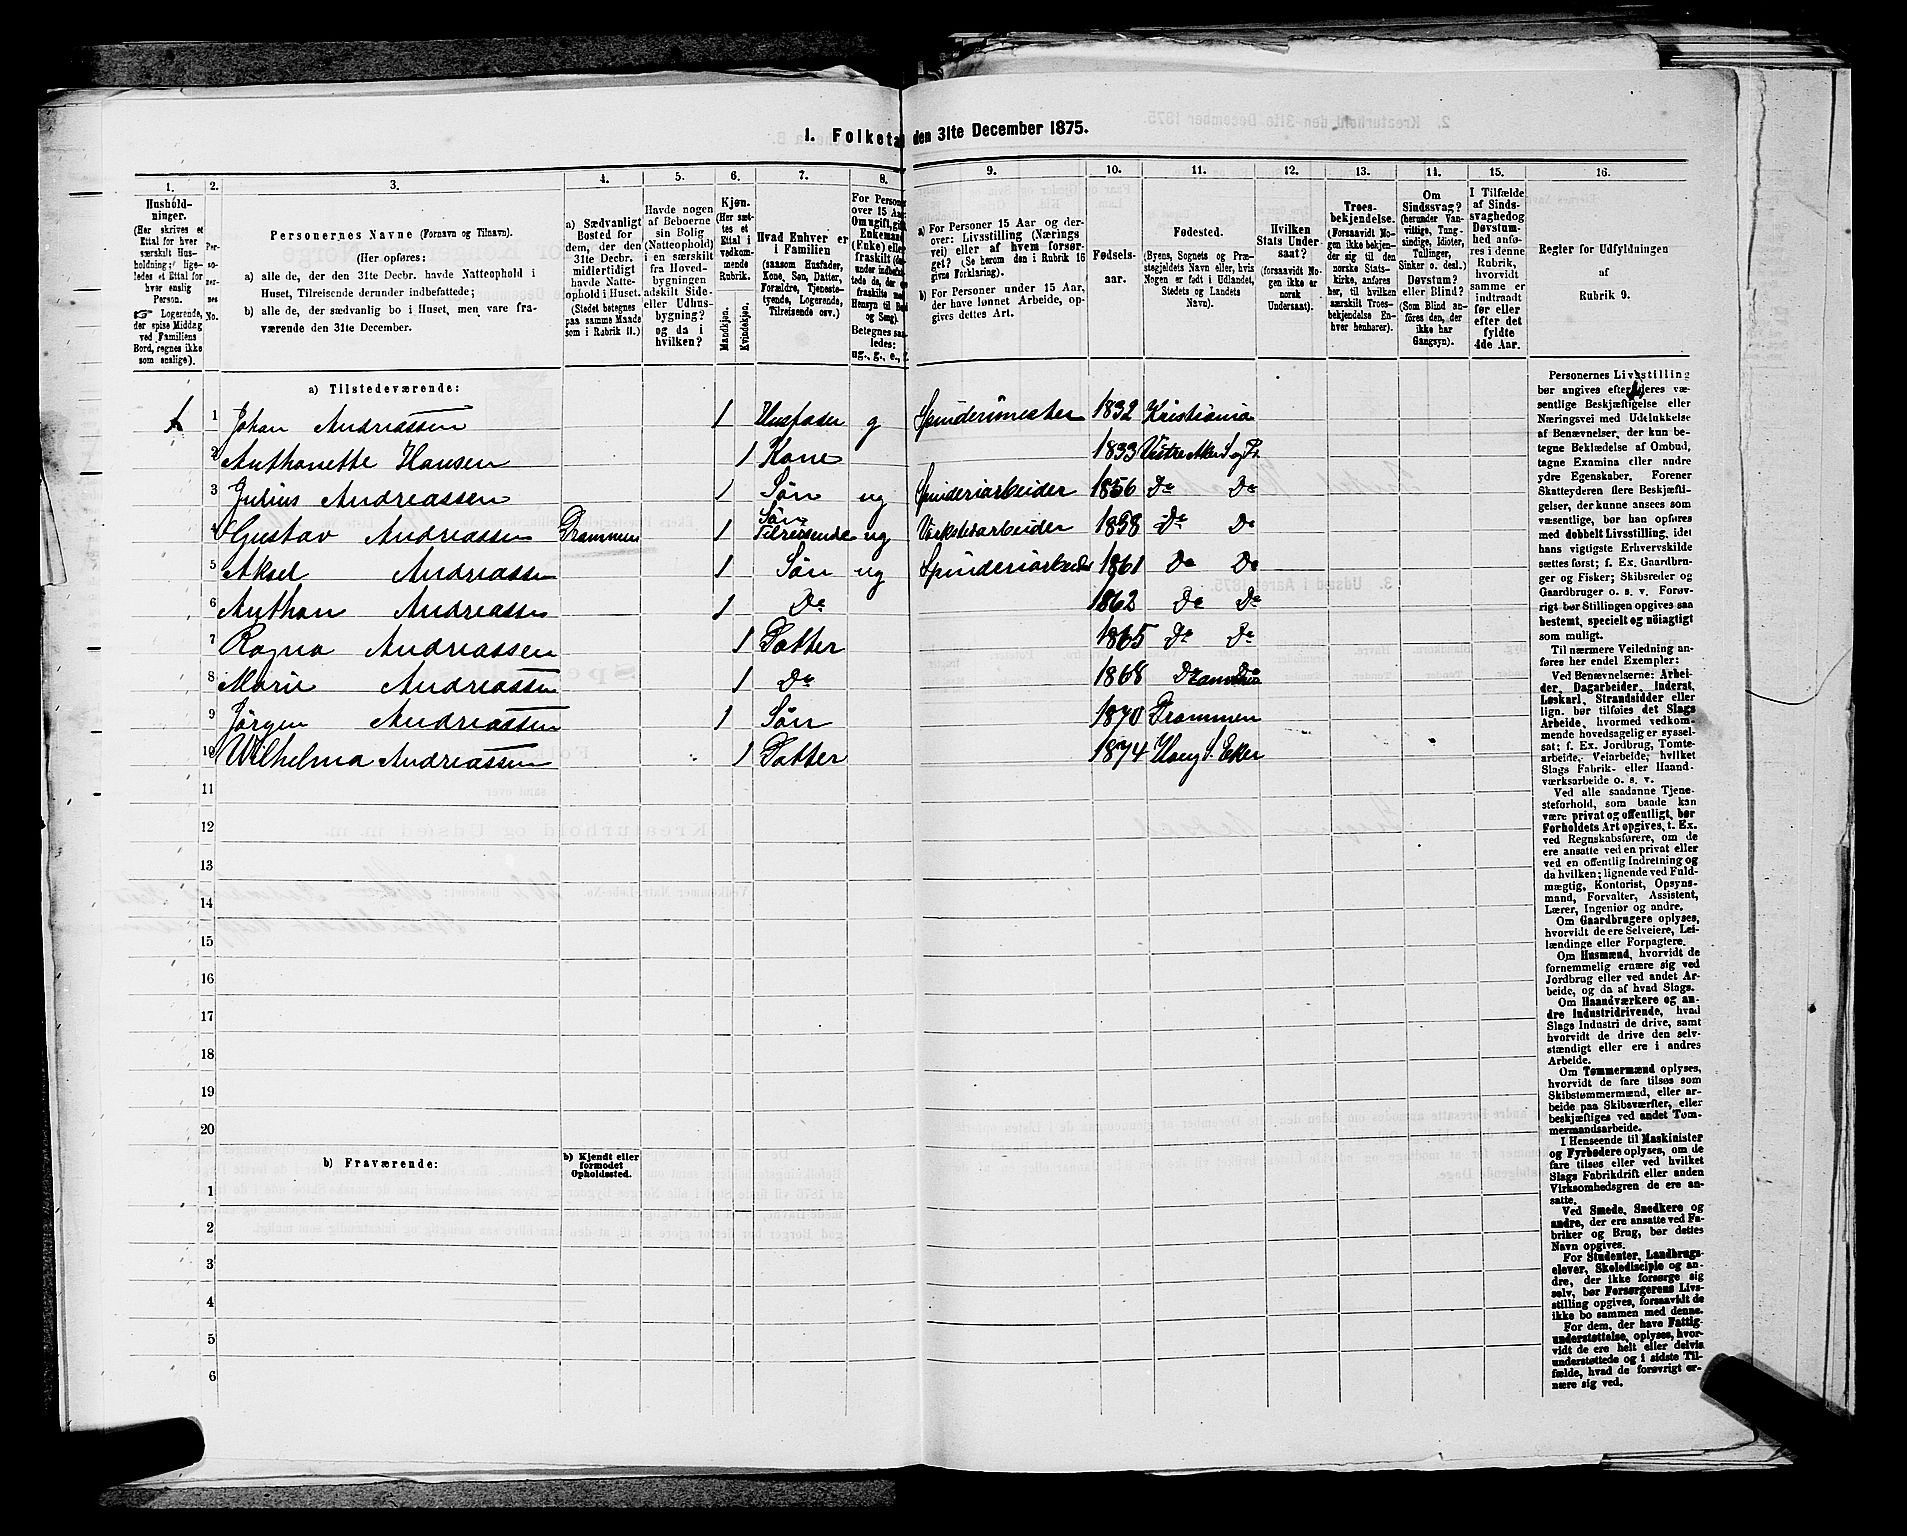 1. Folketal den 31te December 1875.
1. 2. 3. 4. 5. 6. 7. 8. 9. 10. 11. 12. 13. 14. 15. 16.
Husholdninger.
(Her skrives et
Ettal for hver
særskilt Husholdning;
ligeledes et Ettal for
hver enslig
Person.
☞ Logerende,
der spise Middag
ved Familiens
Bord, regnes ikke
som enslige).
Personernes No.
Personernes Navne (Fornavn og Tilnavn).
(Her opføres:
a) alle de, der den 31te Decbr. havde Natteophold i
Huset, Tilreisende derunder indbefattede;
b) alle de, der sædvanlig bo i Huset, men vare fraværende
den 31te December.
a) Sædvanligt
Bosted for
dem, der den
31te Decbr.
midlertidigt
havde Natteophold
i Huset.
(Stedet betegnes
paa samme Maade
som i Rubrik 11.)
Havde nogen
af Beboerne
sin Bolig
(Natteophold)
i en særskilt
fra Hovedbygningen
adskilt Side-
eller Udhusbygning?
og da i
hvilken?
Kjøn.
(Her sættes
et
Ettal i
vedkommende
Rubrik.
Mandkjøn.
Kvindekjøn.
Hvad Enhver er
i Familien
(saasom Husfader,
Kone, Søn, Datter,
Forældre, Tjenestetyende,
Logerende,
Tilreisende osv.)
For Personer
over 15 Aar:
Om ugift, gift,
Enkemand
(Enke) eller
fraskilt
Betegnes saaledes:
ug., g., e., f.
a) For Personer 15 Aar og derover:
Livsstilling (Nærings
vei) eller af hvem forsørget?
(Se herom den i Rubrik 16
givne Forklaring).
b) For Personer under 15 Aar,
der have lønnet Arbeide, opgives
dettes Art.
Fødselsaar.
Fødested.
(Byens, Sognets og Præstegjeldets
Navn eller, hvis
Nogen er født i Udlandet,
Stedets og Landets
Navn).
Hvilken
Stats Undersaat?
(forsaavidt Nogen
ikke er
norsk
Undersaat).
Troesbekjendelse.
(Forsaavidt Nogen
ikke bekjender
sig til den
norske Statskirke,
anføres
her, til hvilken
særskilt Troesbekjendelse
Enhver
benhører).
Om
Sindssvag?
(herunder Vanvittige,
Tungsindige,
Idioter,
Tullinger,
Sinker o. desl.)
Døvstum?
eller Blind?
(Som Blind anføres
den, der
ikke har
Gangsyn).
I Tilfælde
af Sindssvaghed
og
Døvstumhed
anføres
i denne
Rubrik,
hvorvidt
samme er
indtraadt
før eller
efter det
fyldte
4de Aar.
Regler for Udfyldningen
af
Rubrik 9.
a) Tilstedeværende:
1 1 Johan Andreassen 1 Husfader g Spinderimester 1832 Kristiania
2 Anthonette Hansen 1 Kone 1833 Vestre Aker S og P.
3 Julius Andreassen 1 Søn ug Spinderiarbeider 1856 Do Do
4 Gustav Andreassen Drammen 1 Søn Tilreisende ug Værkstedarbeider 1858 Do Do
5 Aksel Andreassen 1 Søn ug Spinderiarbeider 1861 Do Do
6 Anthon Andreassen 1 Do 1862 Do Do
7 Ragna Andreassen 1 Datter 1865 Do Do
8 Marie Andreassen 1 Do 1868
9 Jørgen Andreassen 1 Søn 1870 Drammen
10 Wilhelma Andreassen 1 Datter 1874 Houg S. Eker
11
12
13
14
15
16
17
18
19
20
b) Fraværende:
b) Kjendt eller
formodet
Opholdssted.
1
2
3
4
5
6
Personernes Livsstilling
bør angives efter deres væsentlige
Beskjæftigelse eller
Næringsvei med Udelukkelse
af Benævnelser, der kun betegne
Beklædelse af Ombud,
tagne Examina eller andre
ydre Egenskaber. Forener
Skatteyderen flere Beskjæftigelser,
der kunne ansees som
væsentlige, bør han opføres
med dobbelt Livsstilling, idet
hans vigtigste Erhvervskilde
sættes først; f. Ex. Gaardbruger
og Fisker; Skibsreder og
Gaardbruger o. s. v. Forøvrigt
bør Stillingen opgives saa
bestemt, specielt og nøiagtigt
som muligt.
Til nærmere Veiledning anføres
her endel Exempler:
Ved Benævnelserne: Arbeider,
Dagarbeider, Inderst,
Løskarl, Strandsidder eller
lign. bør tilføies det Slags
Arbeide, hvormed vedkommende
hovedsagelig er sysselsat;
f. Ex. Jordbrug, Tomtearbeide,
Veiarbeide, hvilket
Slags Fabrik- eller Haandværksarbeide
o. s. v.
Ved alle saadanne Tjenesteforhold,
som baade kan
være privat og offentlig, bør
Forholdets Art opgives, t. Ex.
ved Regnskabsførere, om de
ere ansatte ved en privat eller
ved en offentlig Indretning og
da hvilken; lignende ved Fuldmægtig,
Kontorist, Opsynsmand,
Forvalter, Assistent,
Lærer, Ingeniør og andre.
Om Gaardbrugere oplyses,
hvorvidt de ere Selveiere, Leilændinge
eller Forpagtere.
Om Husmænd, hvorvidt de
fornemmelig ernære sig ved
Jordbrug eller ved andet Arbeide,
og da af hvad Slags.
Om Haandværkere og andre
Industridrivende, hvad
Slags Industri de drive, samt
hvorvidt de drive den selvstændigt
eller ere i andres
Arbeide.
Om Tømmermænd oplyses,
hvorvidt de fare tilsøs som
Skibstømmermænd, eller arbeide
paa Skibsværfter, eller
beskjæftiges ved andet Tømmermandsarbeide.
I Henseende til Maskinister
og Fyrbødere oplyses, om de
fare tilsøs eller ved hvilket
Slags Fabrikdrift eller anden
Virksomhedsgren de ere ansatte.
Ved Smede, Snedkere og
andre, der ere ansatte ved Fabriker
og Brug, bør dettes
Navn opgives.
For Studenter, Landbrugselever,
Skoledisciple og andre,
der ikke forsørge sig
selv, bør Forsørgerens Livsstilling
opgives, forsaavidt de
ikke bo sammen med denne.
For dem, der have Fattigunderstøttelse,
oplyses, hvorvidt
de ere helt eller delvis
understøttede og i sidste Tilfælde,
hvad de forøvrigt ernære
sig ved.